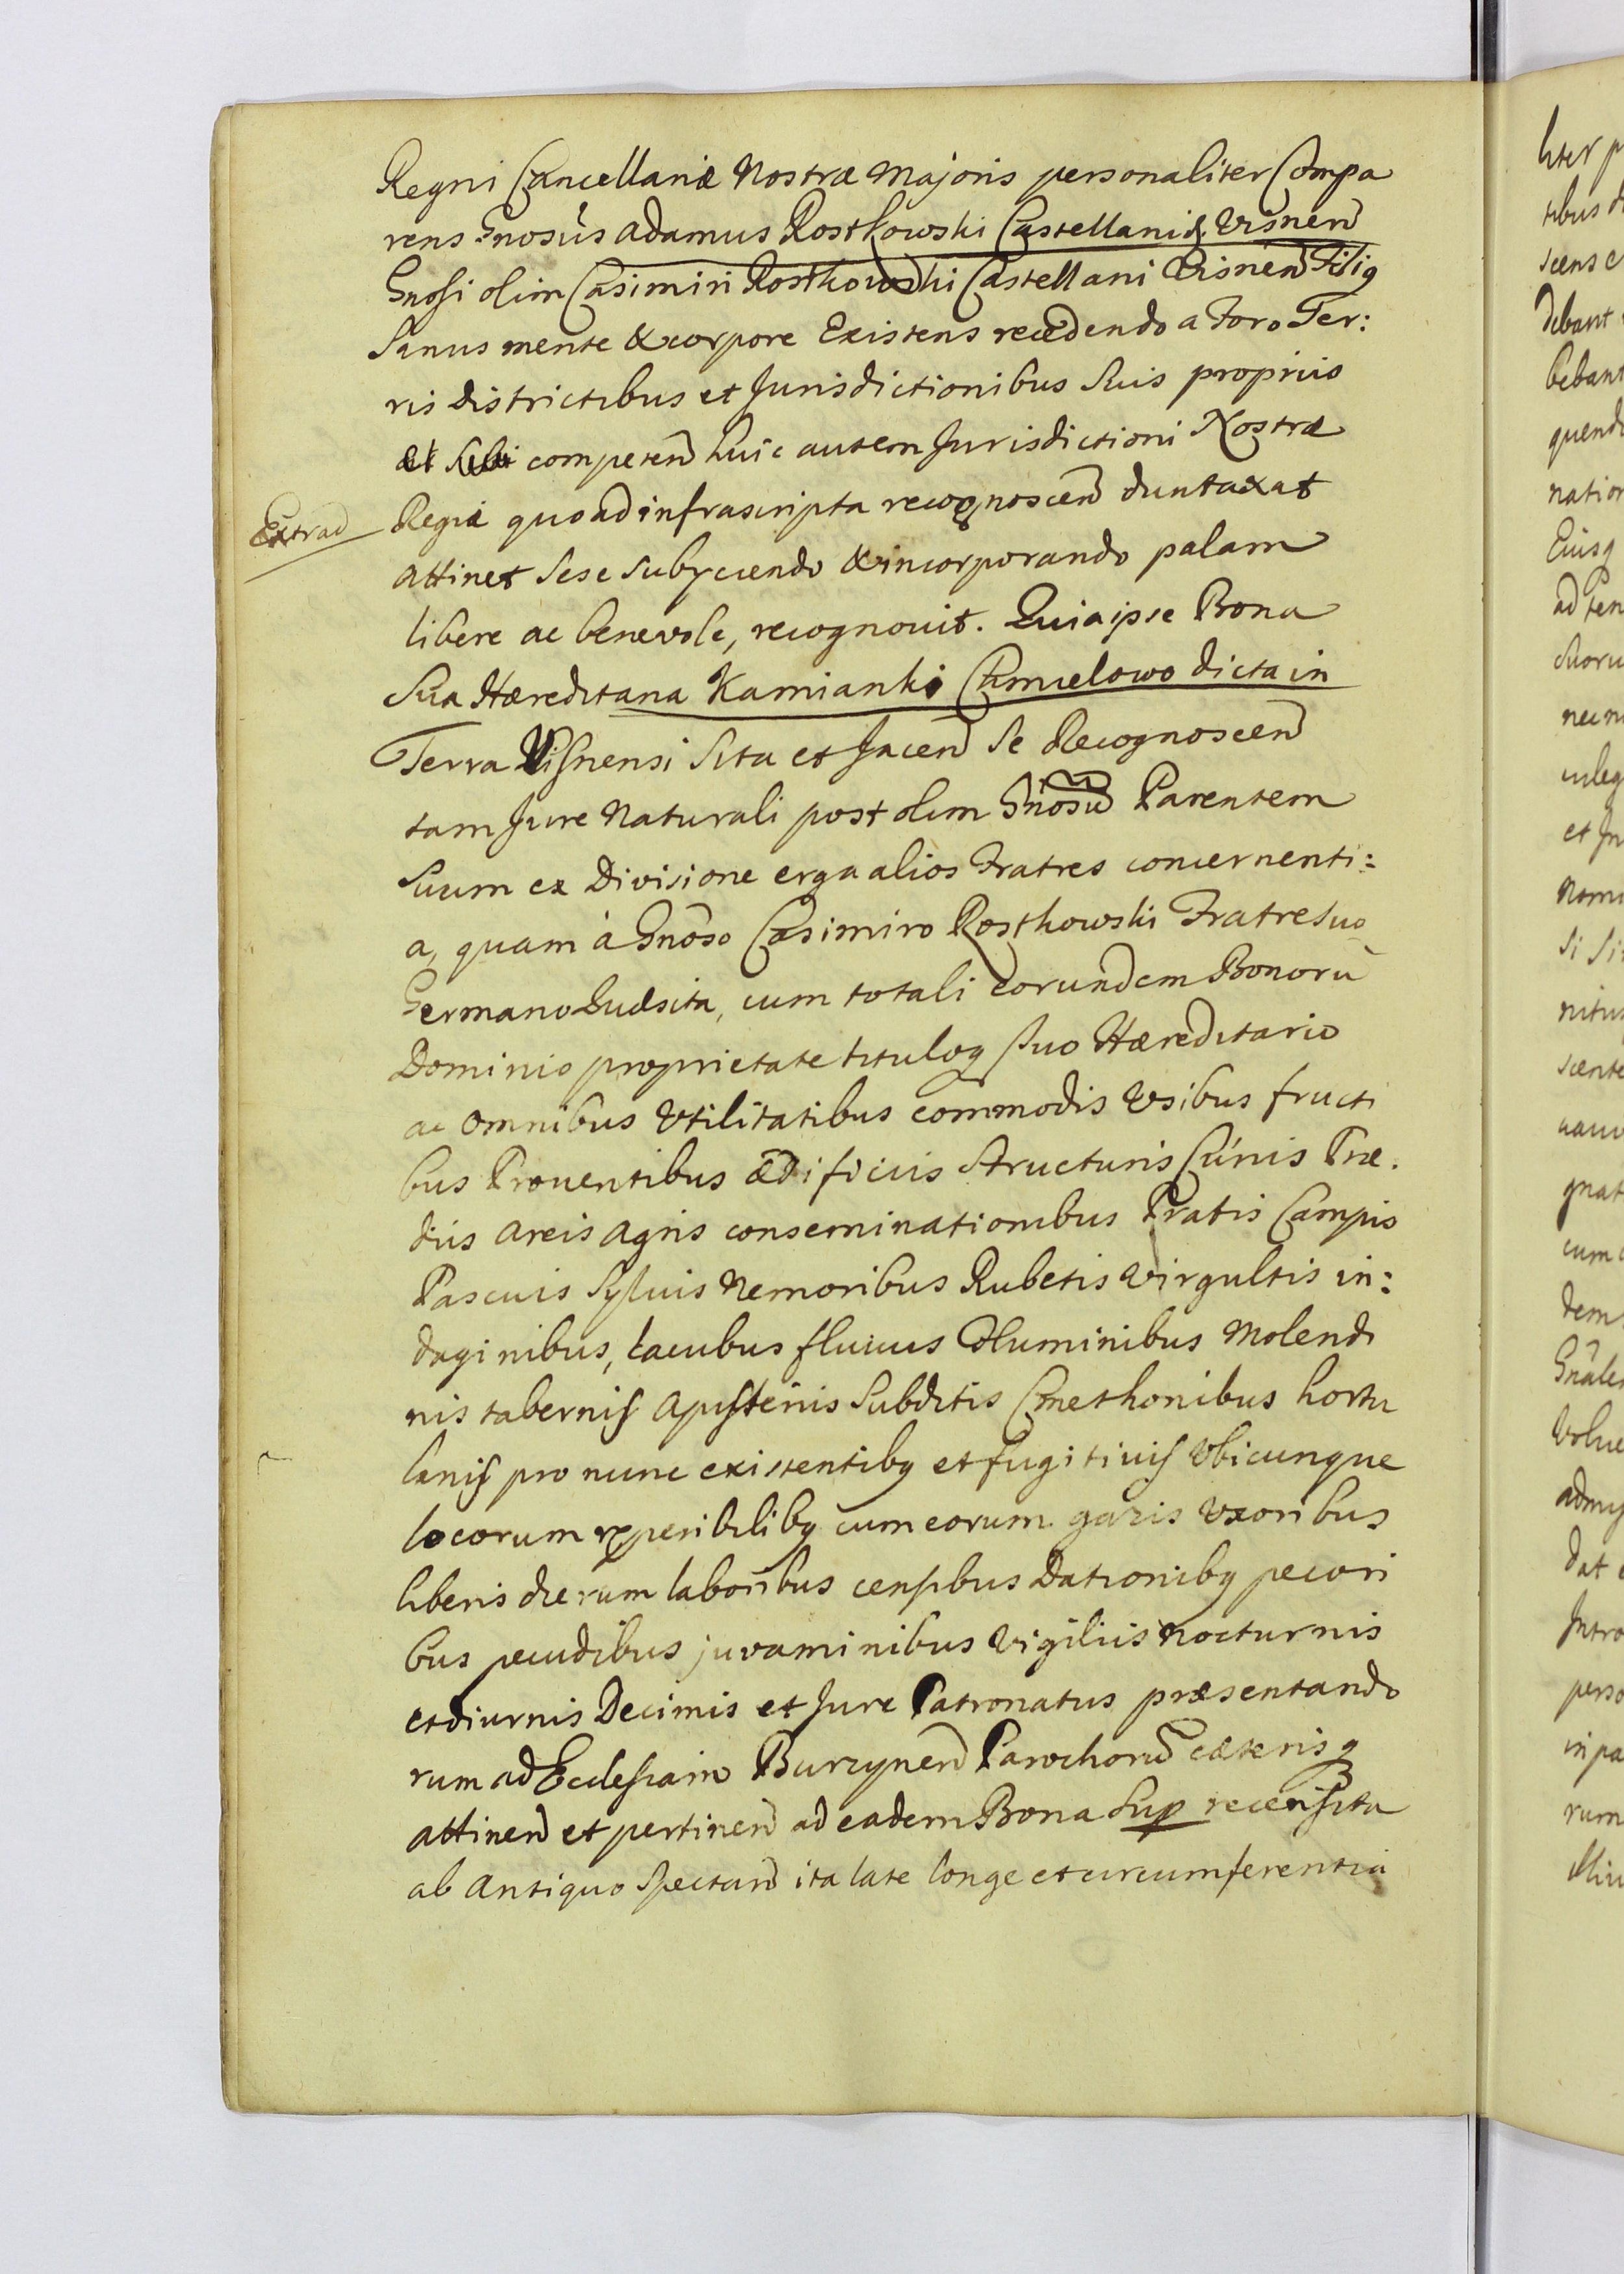 Regni Cancellariæ Nostræ Majoris personaliter Compa
rens Gnosus Adamus Rostkowski Castellanid. Visnen
Gnosi olim Casimiri Rostkowski Castellani Visnen Filiq
Sanus mente & corpore Existens recedendo a Foro Ter:
ris districtibus et Jurisdictionibus Suis propriis
et sibi competen huic autem Jurisdictioni Nostræ
Extrad
Regiæ quo ad infrascripta recognoscen duntaxat
attinet sese subyciendo & incorporando palam
libere ac benevole, recognovit. Quia ipse Bona
Sua Hæreditaria Kamianki Chmielowo dicta in
Terra Visnensi Sita et Jacen Se Recognoscen
tam Jure Naturali post olim Gnosu Parentem
Suum ex Divisione erga alios Fratres concernenti:
a, quam à Gnoso Casimiro Rostkowski Fratre suo
Germano Quæsita, cum totali eorundem Bonorū
Dominio proprietate tituloq suo Hæreditario
ac omnibus Vtilitatibus commodis Vsibus fructi
bus Prouentibus ædificiis structuris Curiis Præ.
diis Areis Agris conseminationibus Pratis Campis
Pascuis Syluis Nemoribus Rubetis virgultis in:
daginibus, lacubus fluviis Fluminibus Molendi
nis tabernis Apisterijs Subditis Cmethonibus hortu
lanis pro nunc existentibq et fugitivis Vbicunque
locorum reperibilibq cum eorum gazis Vxoribus
liberis dierum laboribus censibus Dationibq pecori
bus pecudibus juvaminibus vigiliis nocturnis
et diurnis Decimis et Jure Patronatus præsentando
rum ad Ecclesiam Burzynen Parochorū cæterisq
attinen et pertinen ad eadem Bona Sup recensita
ab Antiquo Spectan ita late longe et circumferentia